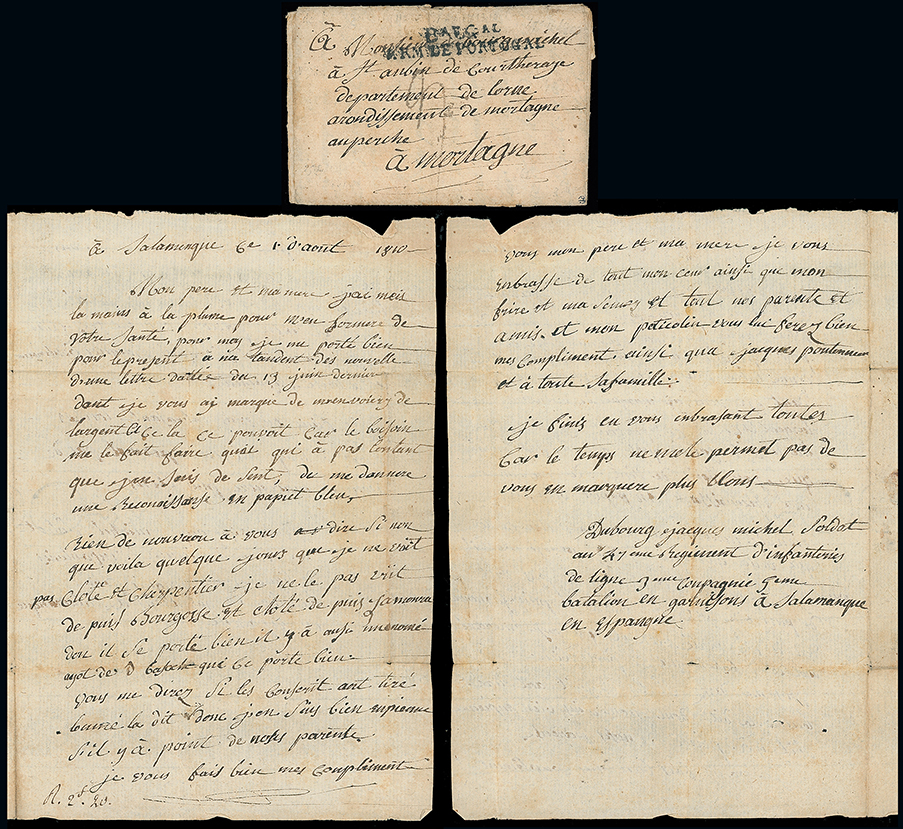 Bau GAL
ARM. DE PORTUGAL
à Monsieur michel
à St aubin de Courtheraye
departement de lorne
arondissement de mortagne
auperche
à mortagne
à Salamenque Ce 1 d'aout 1810
Mon pere et ma mere jai meis
la mains à la plume pour m'en formere de
votre Santé, pour moy je me porte bien
pour le present à na tandent des nouvelle
d'une lettre dattée du 13 juin dernier
dant je vous aj marque de moenvoierz de
largent Ci Ce la ce pouvoit Car le besoin
me le fait faire quoi qui à pas lontant
que jen Sois de Sent, de me donnere
une reconoissanse en papiet bleu,
Rien de nouvaou à vous dire Si non
que voila quelque jours que je ne voit
pas Cloté et Charpentier je ne le pas vüit
de puis Bourgosse et cloté de puis Samoura
don il se porté bien il y à ausi un nomé
ayot de que Ce porte bien
vous me direz Si les Conscrit ont tiré
la dit donc jen Suis bien
S'il y à point de notes parente
je vous fais bien mes Complement
R. 2 s. 20.
vous mon pere et ma mere je vous
enbrasse de tout mon ceur ainsi que mon
frire et ma Seure et tout nos parente et
amis et mon vous lui ferez bien
mes Compliment, ainsi qua jacques
et à toute Safamille
je finis en vous enbrasant toutes
Car le temps ne me le permet pas de
vous en marquere plus Lons
Dubourg jacques michel Soldat
au 47 eme Regiment d'infanteries
de ligne 3 eme Compagnie 4 eme
batalion en garnisons à Salamanque
en Espangne